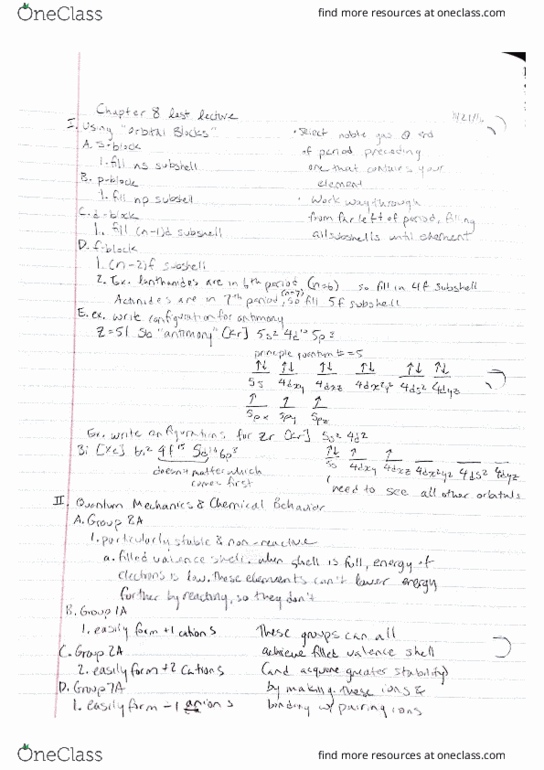 OneClass
find more resources at oneclass.com
Chapter 8 last lecture
I. Using "orbital Blocks"
A. S-block
1. fill ns subshell
B. p-block
1. fill np subshell
C. d-block
1. fill (n-1)d subshell
D. f-block
1. (n-2)f subshell
• Select noble gas @ end
of period preceding
one that contains your
element
• Work way through
from far left of period, filling
all subshells until element
2. Ex. lanthanides are in 6th period (n=6) so fill in 4f subshell
Actinides are in 7th period, (n=7) so fill 5f subshell
E. ex. Write configuration for antimony
Z=51 Sb "antimony" [Kr] 5s² 4d¹⁰ 5p³
principle quantum # = 5
↑↓ ↑↓ ↑↓ ↑↓ ↑↓ ↑↓
5s 4dxy 4dxz 4dx²y² 4dz² 4dyz
↑ ↑ ↑
5px 5py 5pz
Ex. write configurations for Zr [Kr] 5s² 4d²
Bi [Xe] 6s² 4f¹⁴ 5d¹⁰ 6p³
↑↓ ↑ ↑
5s 4dxy 4dxz 4dx²y² 4dz² 4dyz
doesn't matter which
comes first
need to see all other orbitals
II. Quantum Mechanics & Chemical Behavior
A. Group 8A
1. particularly stable & non-reactive
a. filled valence shell. when shell is full, energy of
electrons is low. These elements can't lower energy
further by reacting, so they don't
B. Group 1A
1. easily form +1 cations
C. Group 2A
2. easily form +2 cations
D. Group 7A
1. easily form -1 anions
These groups can all
achieve filled valence shell
(and acquire greater stability)
by making these ions &
binding w/ pairing ions
OneClass
find more resources at oneclass.com